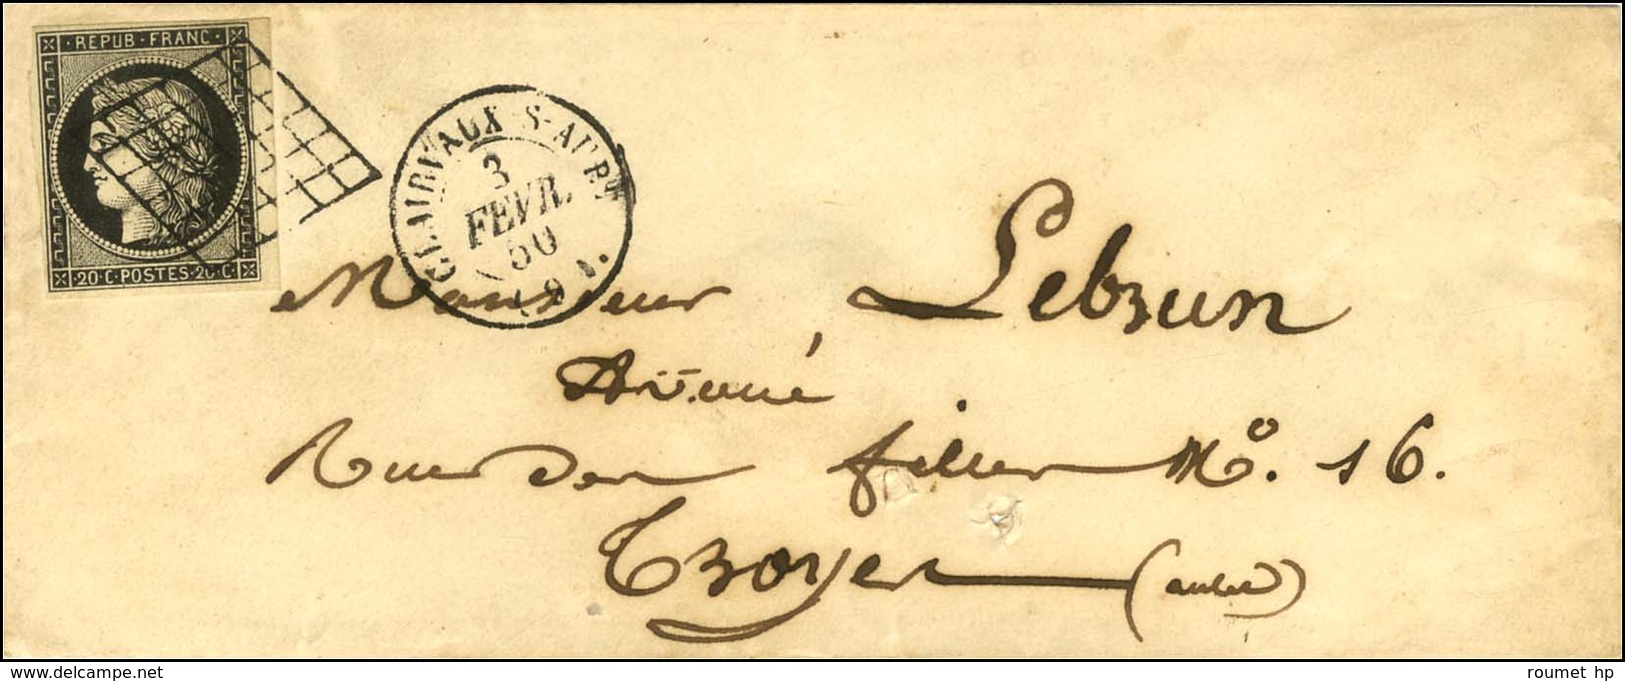 REPUB·FRANC·
20·C·POSTES·20·C·
CLAIRVAUX S-AUBE
3
FEVR.
50
(9).
Monsieur Lebrun
Avoué
Rue des filles No. 16.
Troyes (aube)
delcampe.net
roumet hp